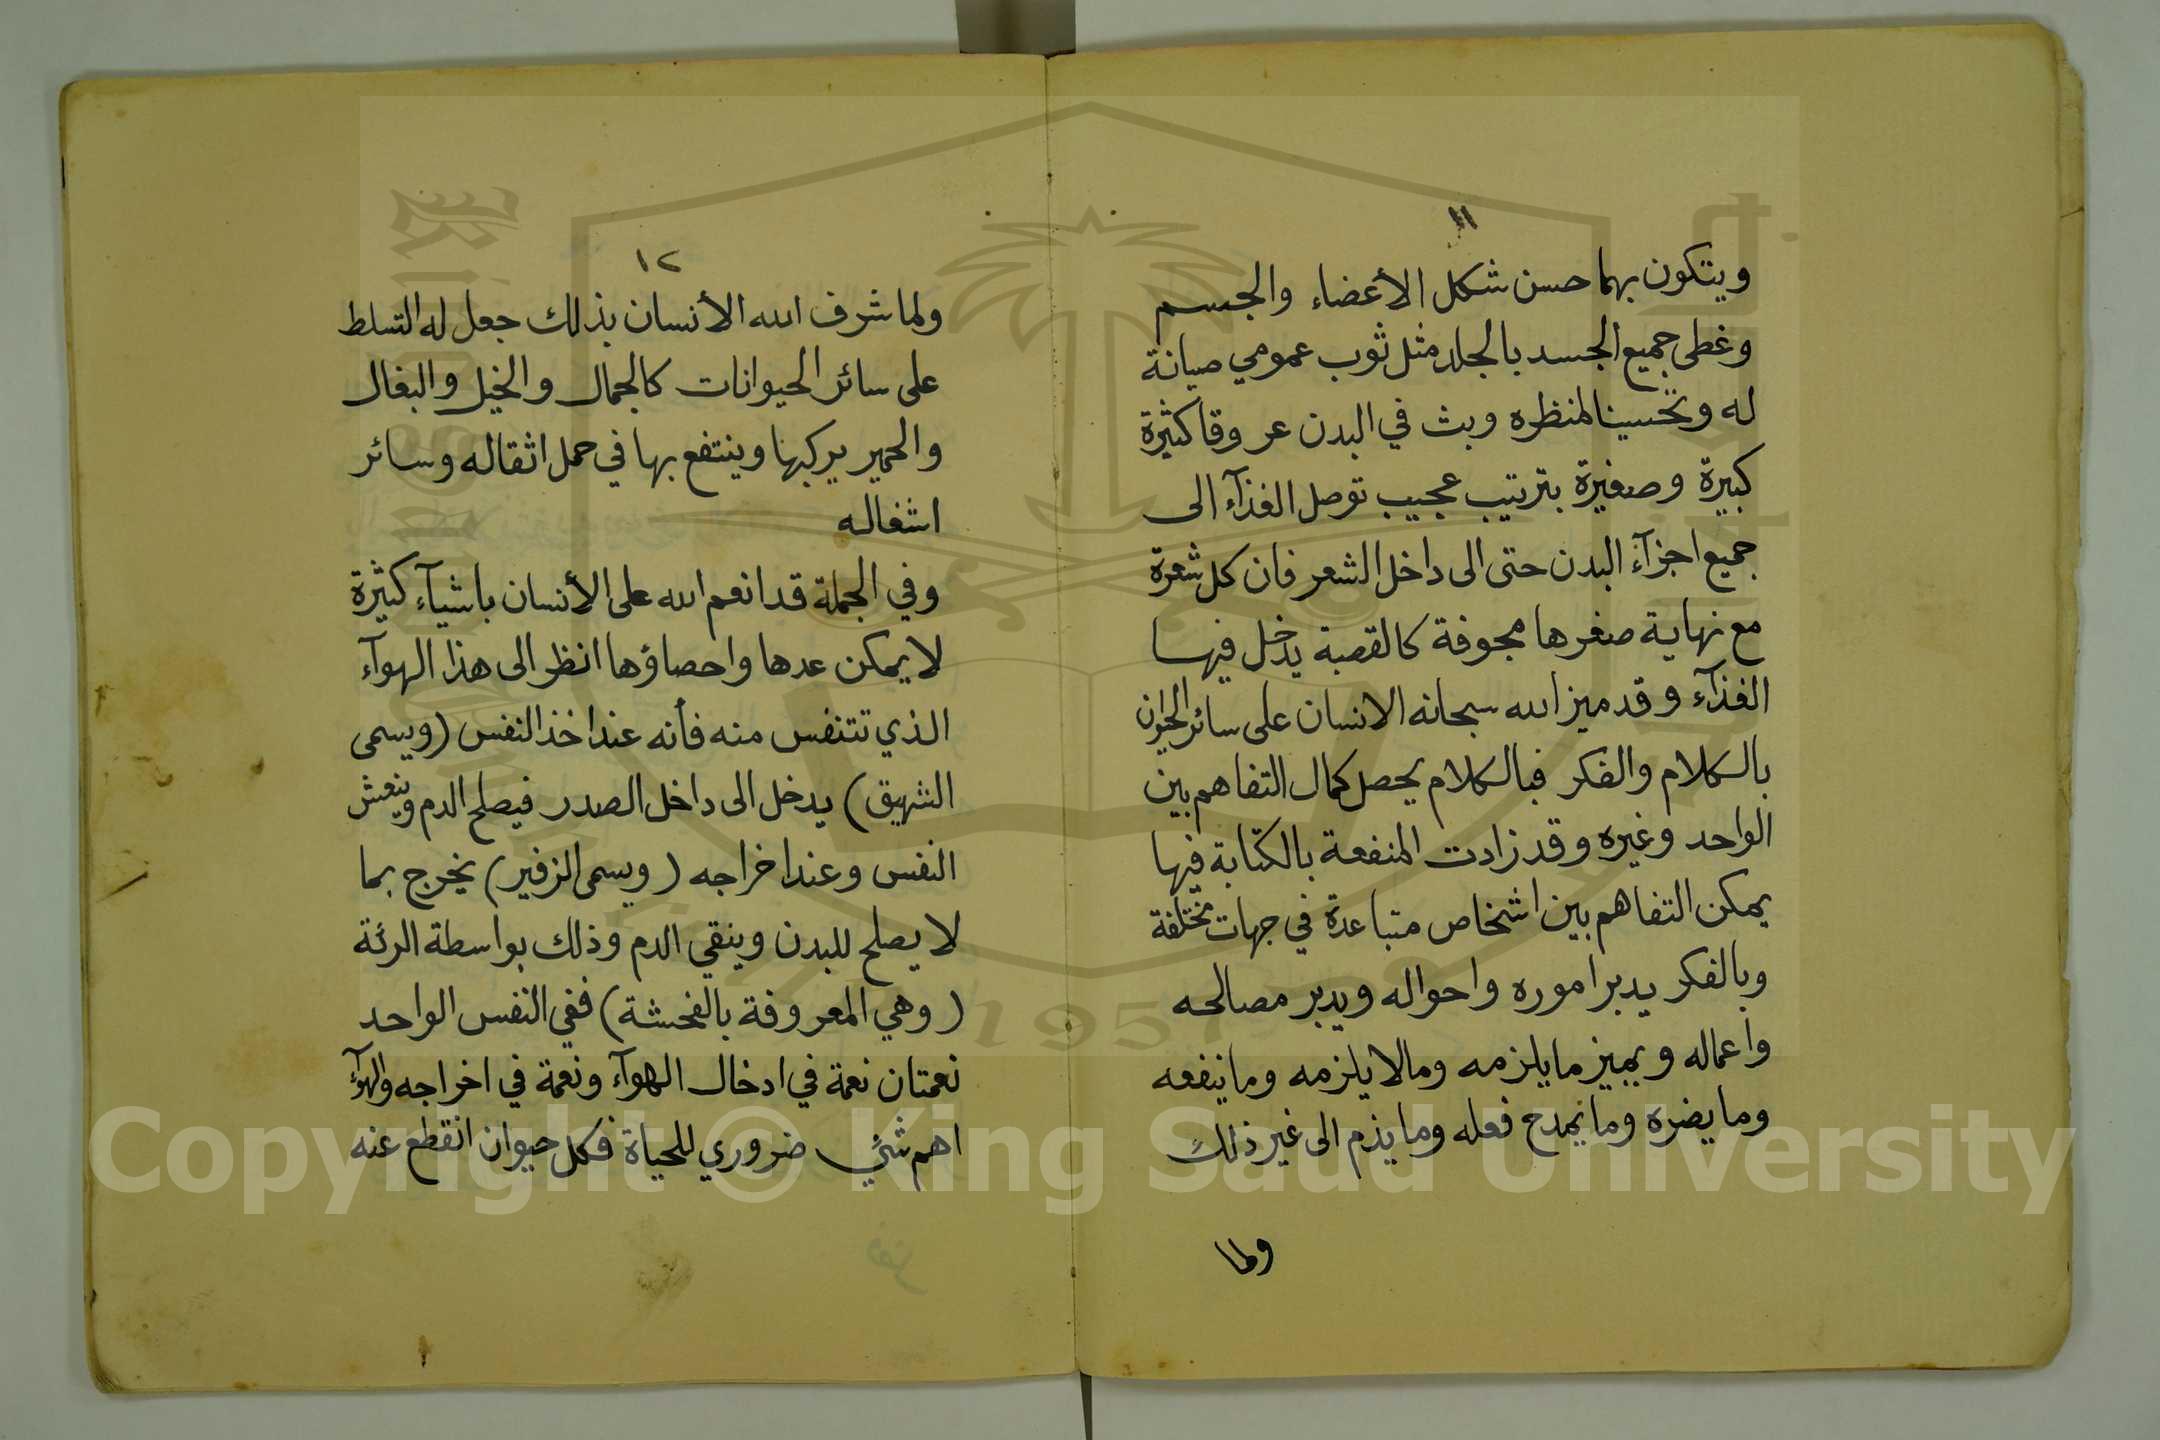 ١١
ويتكون بهما حسن شكل الأعضاء والجسم
وغطى جميع الجسد بالجلد مثل ثوب عمومي صيانة
له وتحسينا لمنظره وبث في البدن عروقا كثيرة
كبيرة وصغيرة بترتيب عجيب توصل الغذآء الى
جميع اجزآء البدن حتى الى داخل الشعر فان كل شعرة
مع نهاية صغرها مجوفة كالقصبة يدخل فيها
الغذآء وقد ميز الله سبحانه الانسان على سائر الحيوان
بالكلام والفكر فبالكلام يحصل كمال التفاهم بين
الواحد وغيره وقد زادت المنفعة بالكتابة فبها
يمكن التفاهم بين اشخاص متباعدة في جهات مختلفة
وبالفكر يدبر اموره واحواله ويدبر مصالحه
واعماله ويميز ما يلزمه ومالا يلزمه وما ينفعه
وما يضره وما يمدح فعله وما يذم الى غير ذلك
ولما
١٢
ولما شرف الله الأنسان بذلك جعل له التسلط
على سائر الحيوانات كالجمال والخيل والبغال
والحمير يركبها وينتفع بها في حمل اثقاله وسائر
اشغاله
وفي الجملة قد انعم الله على الأنسان باشيآء كثيرة
لا يمكن عدها واحصاؤها انظر الى هذا الهوآء
الذي تتنفس منه فأنه عند اخذ النفس (ويسمى
الشهيق) يدخل الى داخل الصدر فيصلح الدم وينعش
النفس وعند اخراجه (ويسمى الزفير) يخرج بما
لا يصلح للبدن وينقي الدم وذلك بواسطة الرئة
(وهي المعروفة بالفحشة) ففي النفس الواحد
نعمتان نعمة في ادخال الهوآء ونعمة في اخراجه والهوآء
اهم شئي ضروري للحياة فكل حيوان انقطع عنه
1957
Copyright © King Saud University